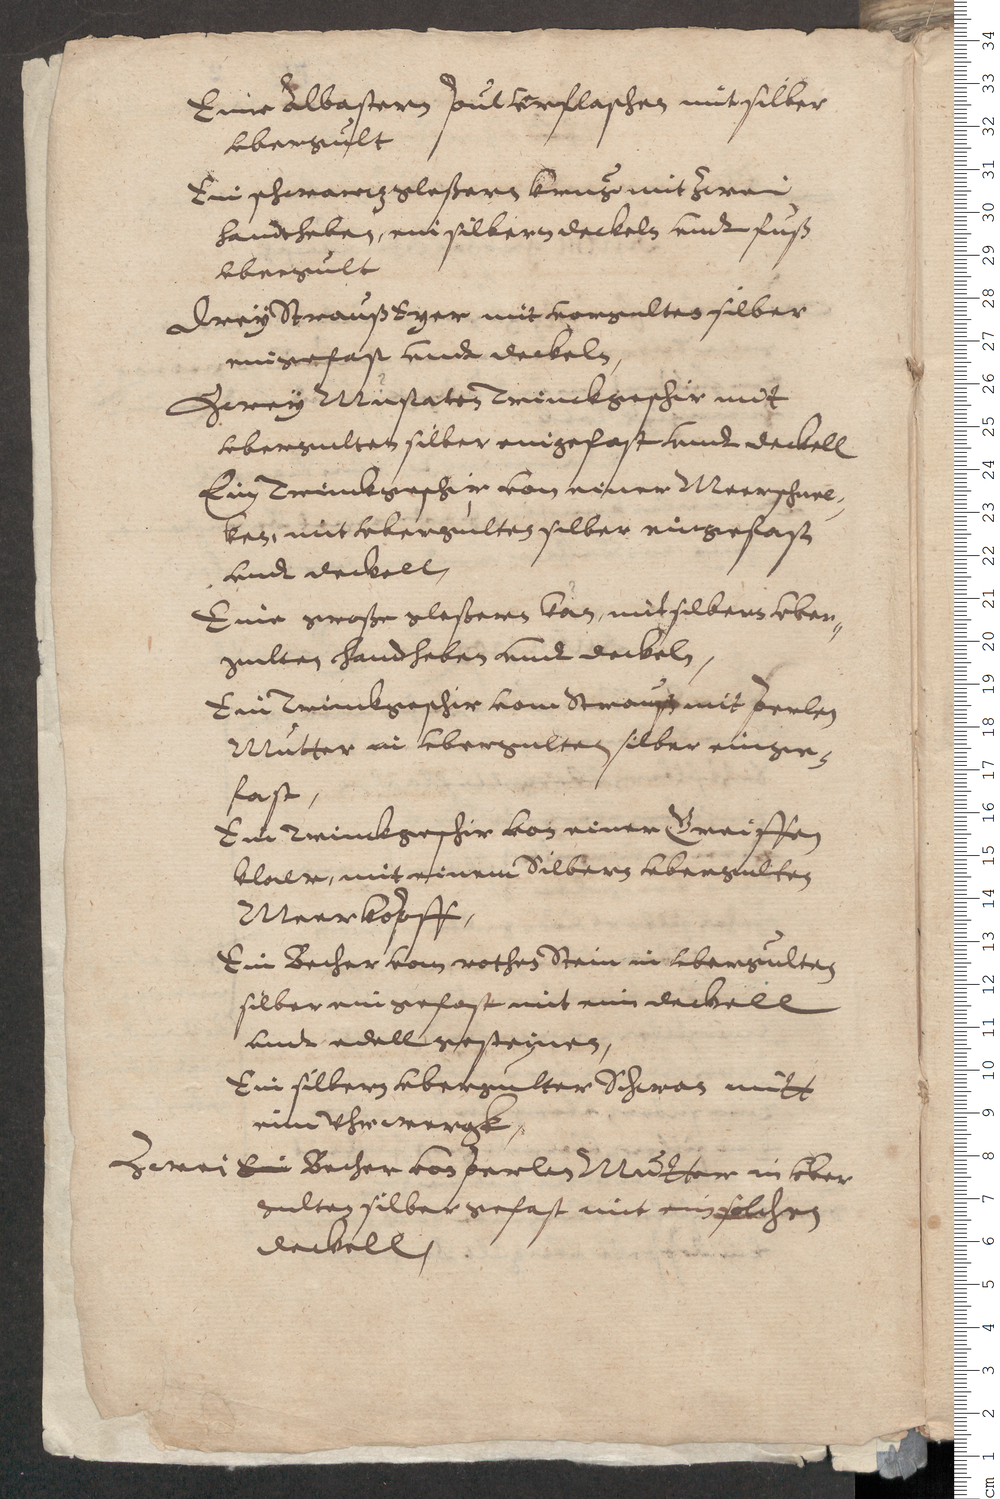 Eine Albastern Pulverflaschen mit silber
vberguldt
Ein schwartz gleßern krug mit zwei
handtheben, ein silbern deckeln vndt fuß
vbergult
Drey Strauß Eyer mit vorgulten silber
eingefast vndt deckeln,
Zwey Muscaten Trinckgeschir mit
vbergulten silber eingefast vndt deckell
Ein Trinckgeschir von einer Meerschnec-
ken, mit vbergulten silber eingefast
vndt deckell,
Eine große gleßern kan, mit silbern vber-
gulten handheben vndt deckeln,
Ein Trinckgeschir vom Strauß mit Perlen
Mutter in vbergulten silber einge-
fast,
Ein Trinckgeschir von einer Greiffen
klaer, mit einem Silbern vbergulten
Meerkopff,
Ein Becher von rothen Stein in vbergulten
silber eingefast mit ein deckell
vndt edellgesteinen,
Ein silbern vbergulter Schwan mitt
eim Vhrwergk,
Zwei Ein Becher von Perlen Mutter in vber
gulten silber gefast mit ein solchen
deckell,